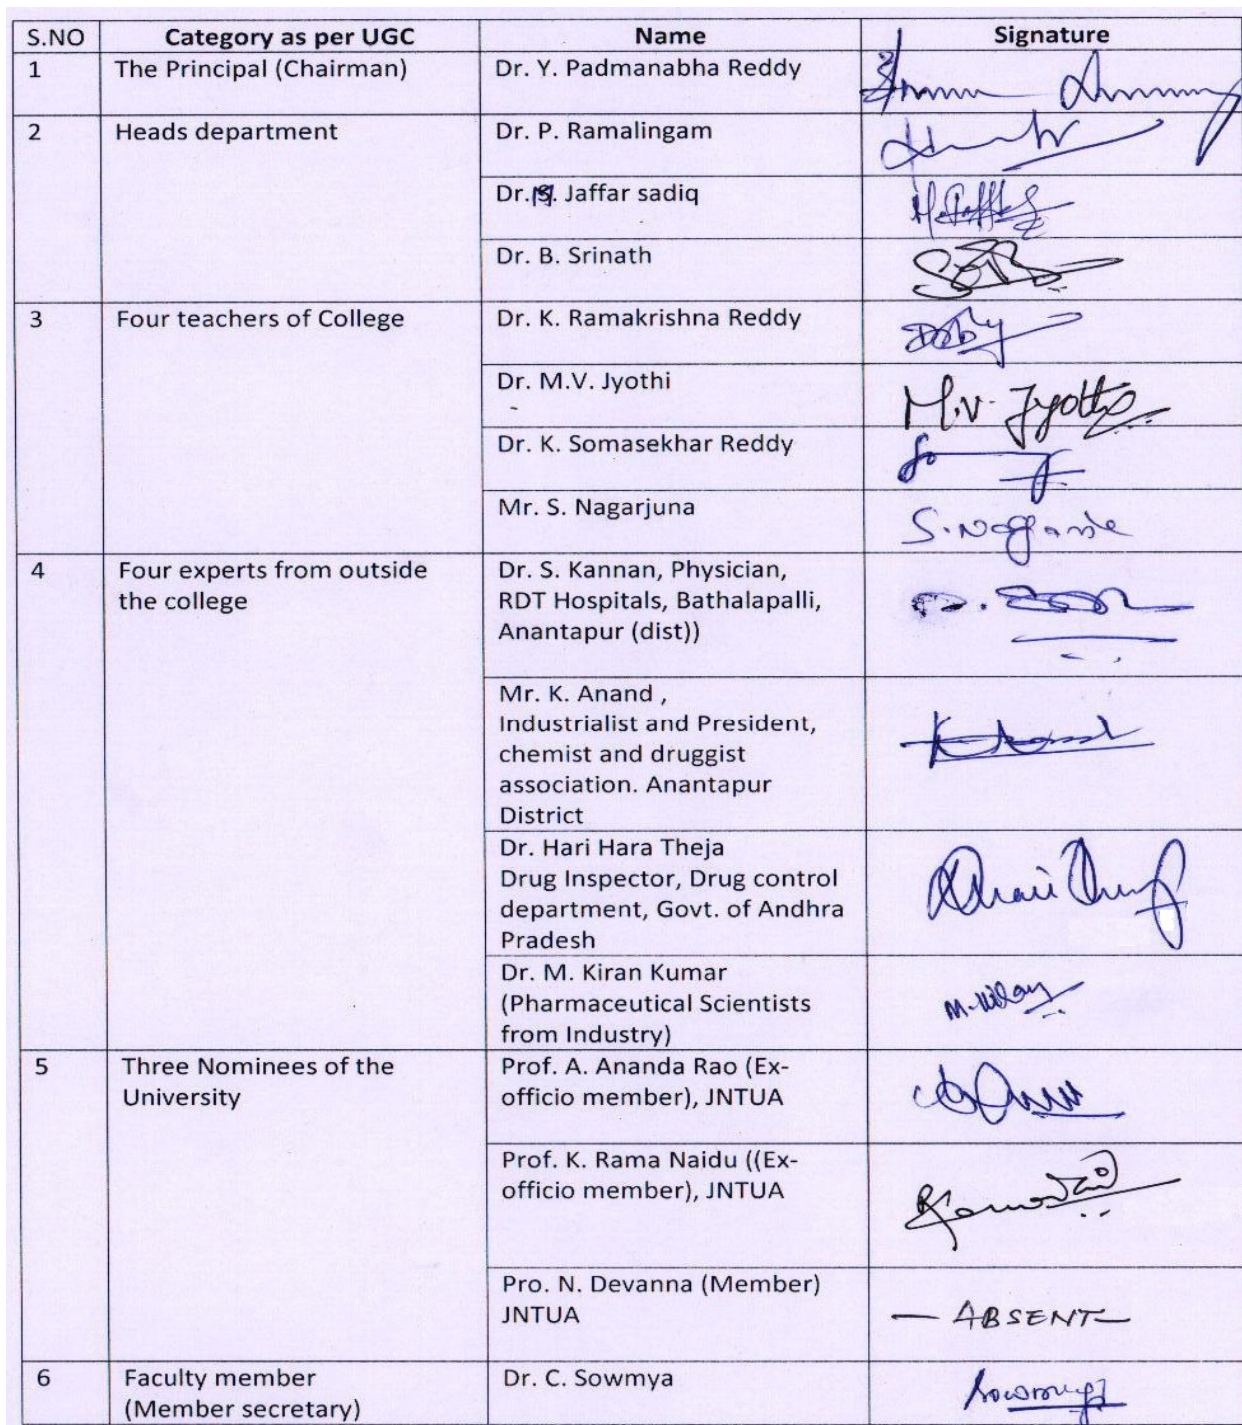 S.NO Category as per UGC Name Signature
1 The Principal (Chairman) Dr. Y. Padmanabha Reddy
2 Heads department Dr. P. Ramalingam
Dr. M. Jaffar sadiq
Dr. B. Srinath
3 Four teachers of College Dr. K. Ramakrishna Reddy
Dr. M.V. Jyothi M.V. Jyothi
Dr. K. Somasekhar Reddy
Mr. S. Nagarjuna
4 Four experts from outside Dr. S. Kannan, Physician,
the college RDT Hospitals, Bathalapalli,
Anantapur (dist))
Mr. K. Anand ,
Industrialist and President,
chemist and druggist
association. Anantapur
District
Dr. Hari Hara Theja
Drug Inspector, Drug control
department, Govt. of Andhra
Pradesh
Dr. M. Kiran Kumar
(Pharmaceutical Scientists
from Industry)
5 Three Nominees of the Prof. A. Ananda Rao (Ex-
University officio member), JNTUA
Prof. K. Rama Naidu ((Ex-
officio member), JNTUA
Pro. N. Devanna (Member)
JNTUA — ABSENT —
6 Faculty member Dr. C. Sowmya
(Member secretary)